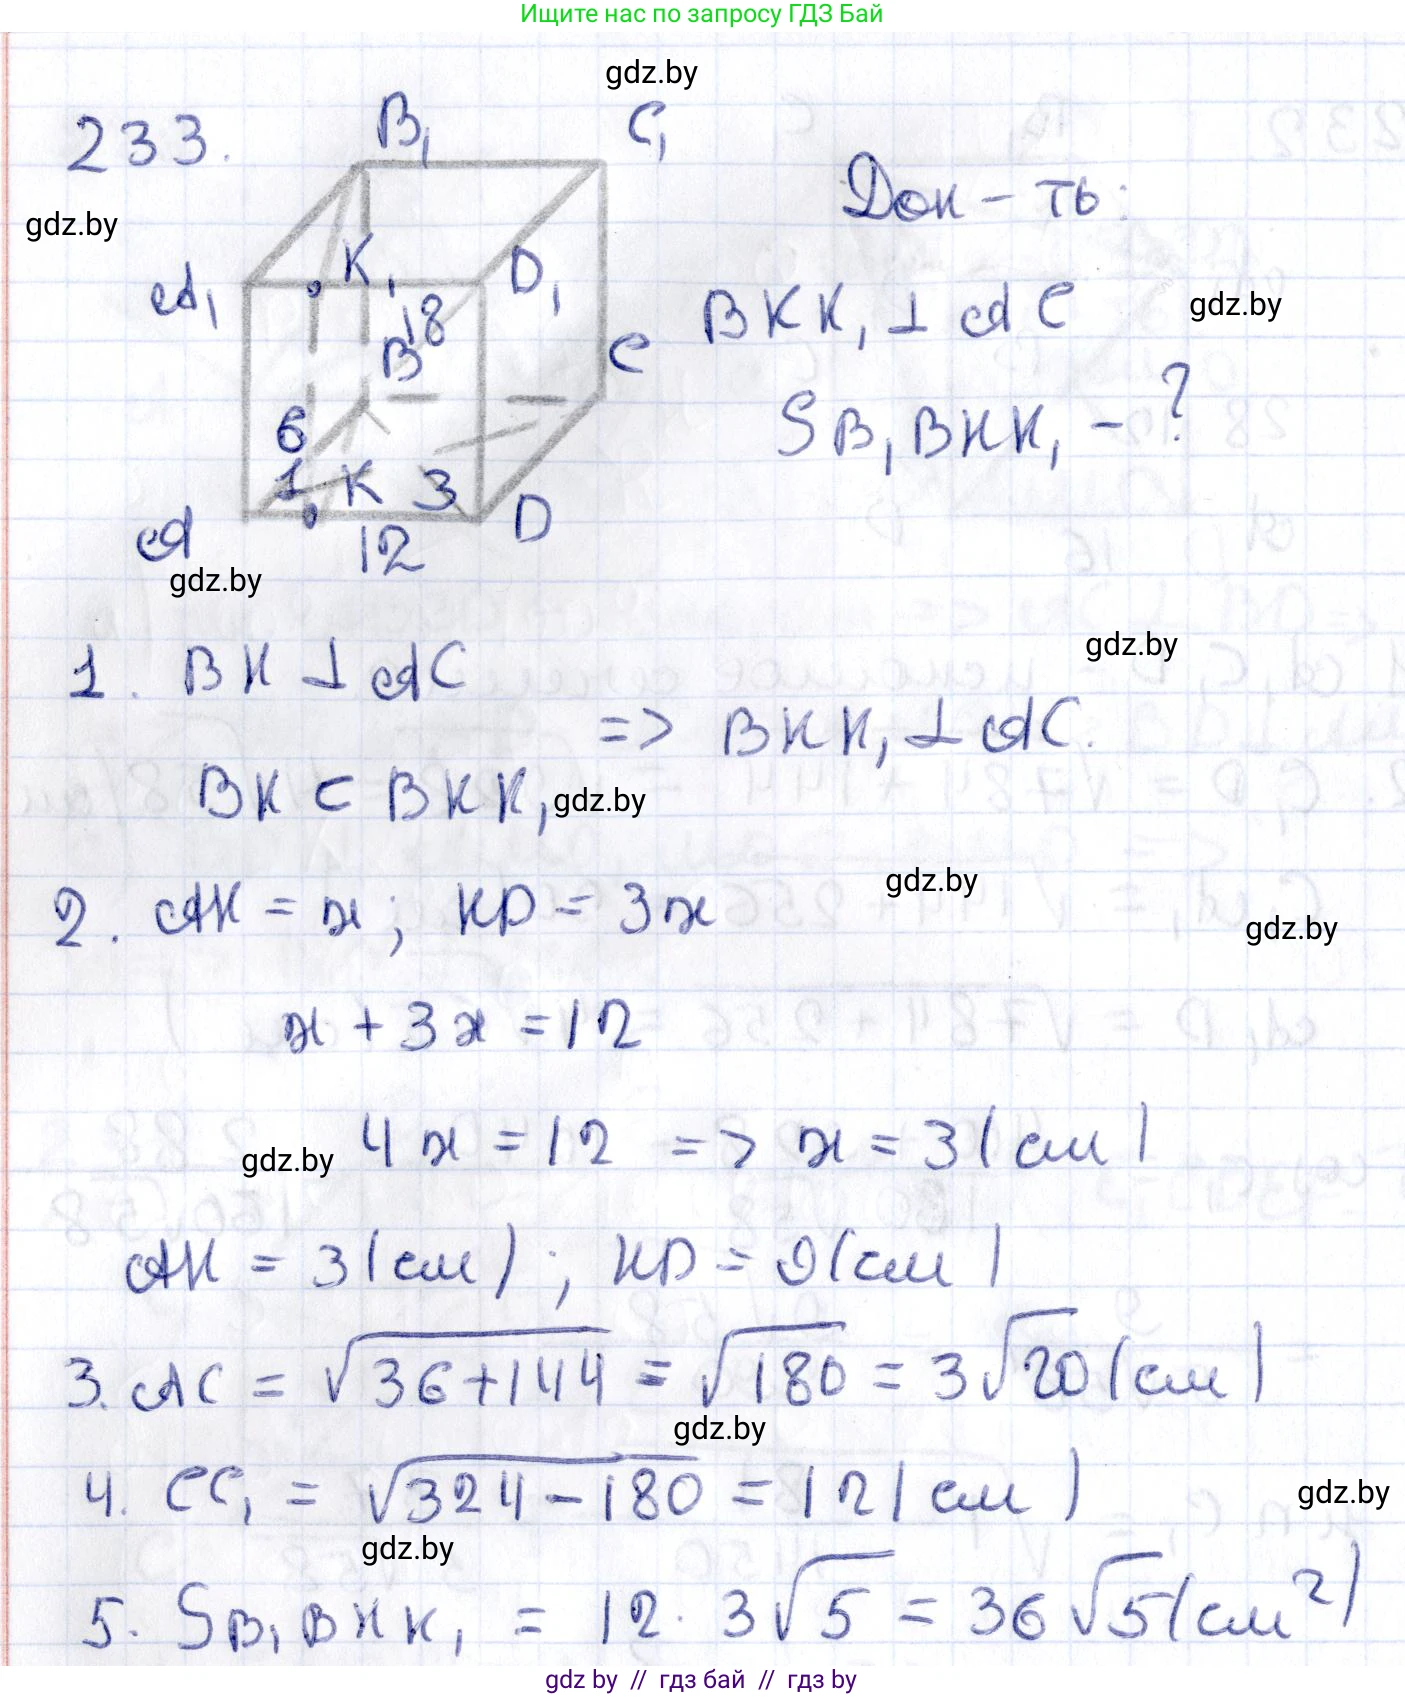 Ищите нас по запросу ГДЗ Бай
gdz.by
233.
B₁ C₁
Док-ть:
gdz.by
K₁ D₁
A₁
18
BKK₁ ⊥ AC
gdz.by
B C
6
S B₁BKK₁ - ?
1 K 3
A D
12
gdz.by
gdz.by
1. BK ⊥ AC
=> BKK₁ ⊥ AC.
BK ⊂ BKK₁
gdz.by
gdz.by
2. AK = x; KD = 3x
gdz.by
x + 3x = 12
4x = 12 => x = 3 (см)
gdz.by
AK = 3 (см); KD = 9 (см)
3. AC = √36+144 = √180 = 3√20 (см)
gdz.by
4. CC₁ = √324-180 = 12 (см)
gdz.by
gdz.by
5. S B₁BKK₁ = 12 · 3√5 = 36√5 (см²)
gdz by // гдз бай // гдз by